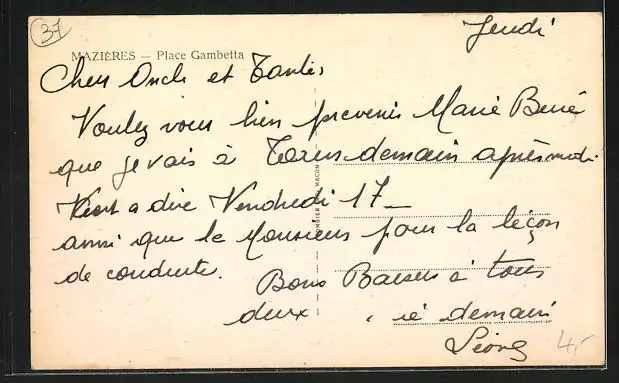 37
Jeudi
MAZIÈRES — Place Gambetta
Cher Oncle et Tantes
Voulez vous bien prevenir Marie
que je vais à demain après midi
C'est a dire Vendredi 17 —
ainsi que le Monsieur pour la leçon
de conduite. Bons Baisers à tous
deux. à demain
4,-